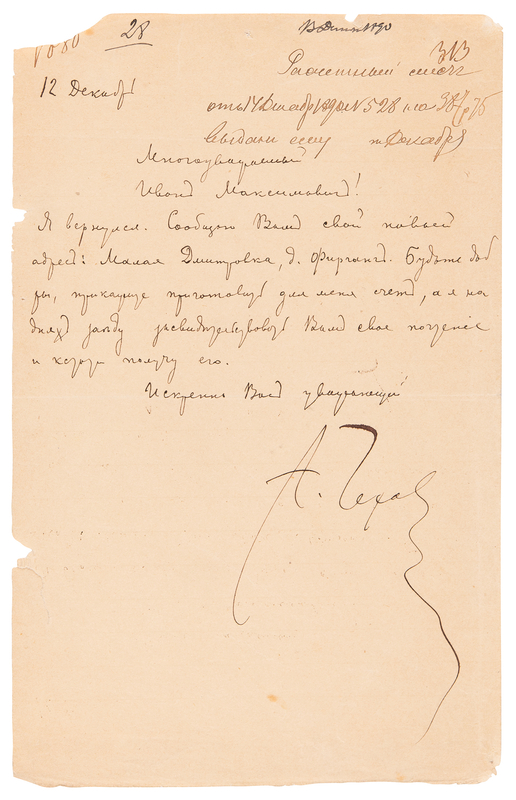 28
313
12 Декабрь
Расчетный счет
от 14 Декабря 90 № 528 на 384 р 75
выдан ему Декабря
Многоуважаемый
Иван Максимович!
Я вернулся. Сообщаю Вам свой новый
адрес: Малая Дмитровка, д. Фирганг. Будьте доб
ры, прикажите приготовить для меня счет, а я на
днях заеду засвидетельствовать Вам свое почтение
и кстати получу его.
Искренно Вас уважающий
А. Чехов